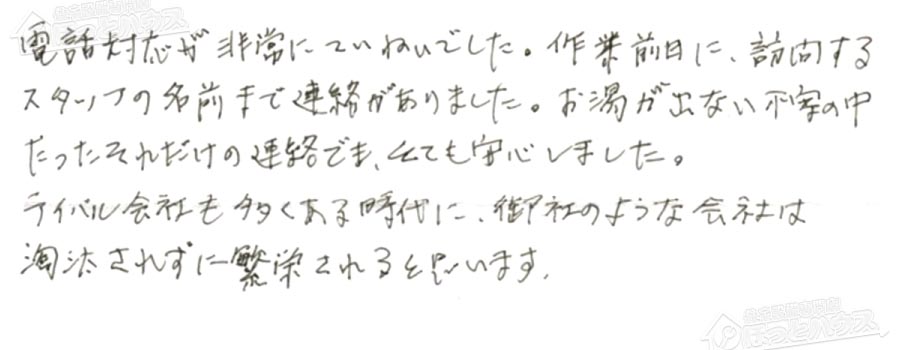 電話対応が非常にていねいでした。作業前日に、訪問する
スタッフの名前まで連絡がありました。お湯が出ない不安の中
たったそれだけの連絡でも、とても安心しました。
ライバル会社も多くある時代に、御社のような会社は
淘汰されずに繁栄されると思います。
ほっとハウス